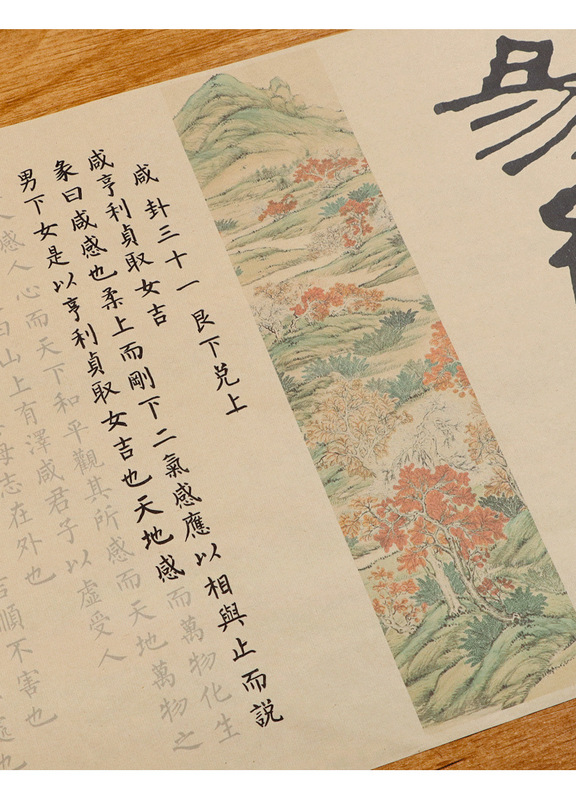 易
咸卦三十一 艮下兌上
咸亨利貞取女吉
彖曰咸感也柔上而剛下二氣感應以相與止而說
男下女是以亨利貞取女吉也天地感而萬物化生
人感人心而天下和平觀其所感而天地萬物之
曰山上有澤咸君子以虛受人
志在外也
吉順不害也
處也